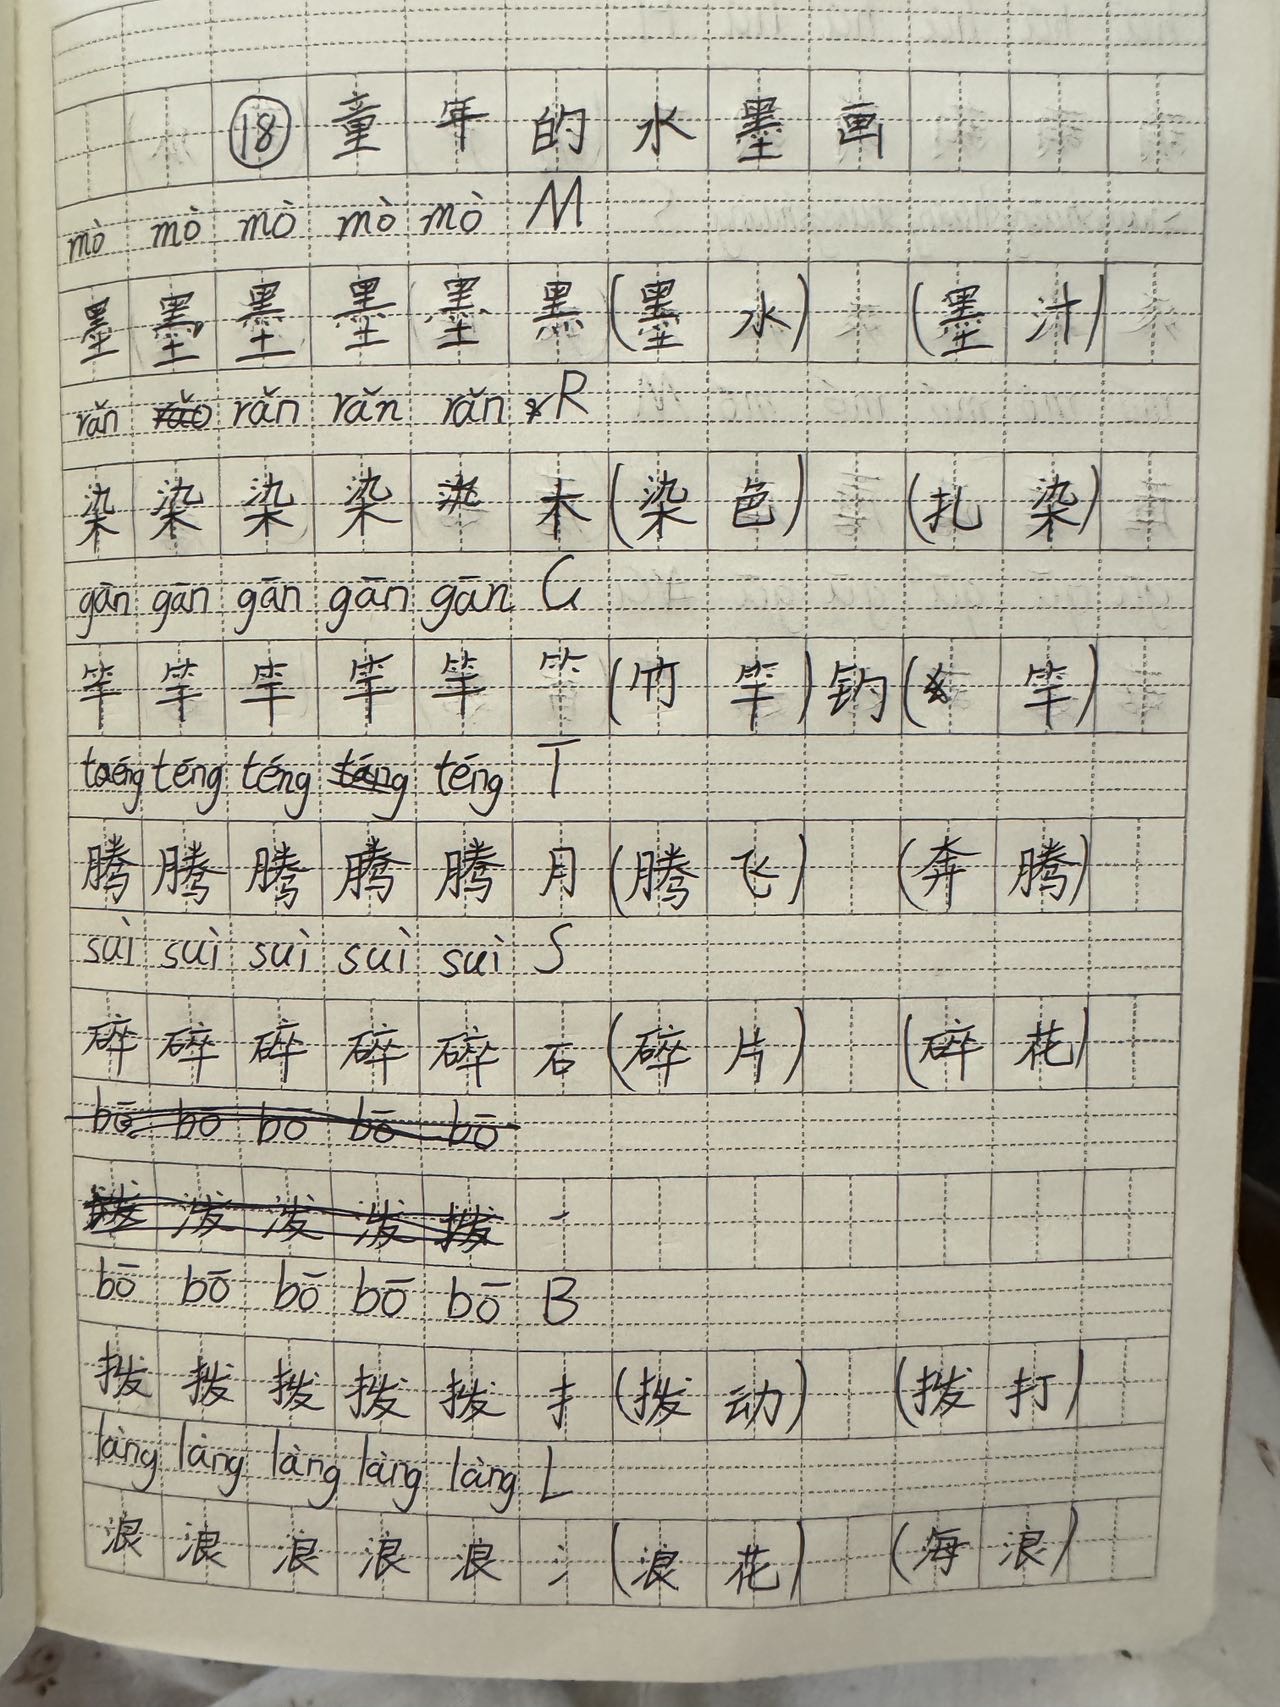 ⑱ 童年的水墨画
mò mò mò mò mò M
墨 墨 墨 墨 墨 黑 (墨水) (墨汁)
rǎn rǎo rǎn rǎn rǎn R
染 染 染 染 染 木 (染色) (扎染)
gān gān gān gān gān G
竿 竿 竿 竿 竿 ⺮ (竹竿) 钓( 竿)
téng téng téng táng téng T
腾 腾 腾 腾 腾 月 (腾飞) (奔腾)
suì suì suì suì suì S
碎 碎 碎 碎 碎 石 (碎片) (碎花)
bō bō bō bō bō
拨 泼 泼 泼 拨
bō bō bō bō bō B
拨 拨 拨 拨 拨 扌 (拨动) (拨打)
làng làng làng làng làng L
浪 浪 浪 浪 浪 氵 (浪花) (海浪)